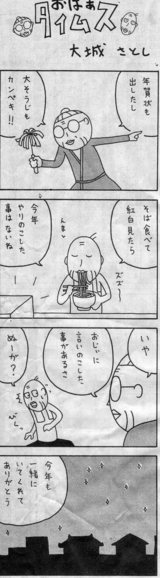 おばぁ
タイムス
大城 さとし
年賀状も
出したし
大そうじも
カンペキ!!
そば食べて
紅白見たら
ズズ〜
んま
今年
やりのこした
事はないね
いや
おじぃに
言いのこした
事があるさ
ぬーが?
びら。
今年も
一緒に
いてくれて
ありがとう